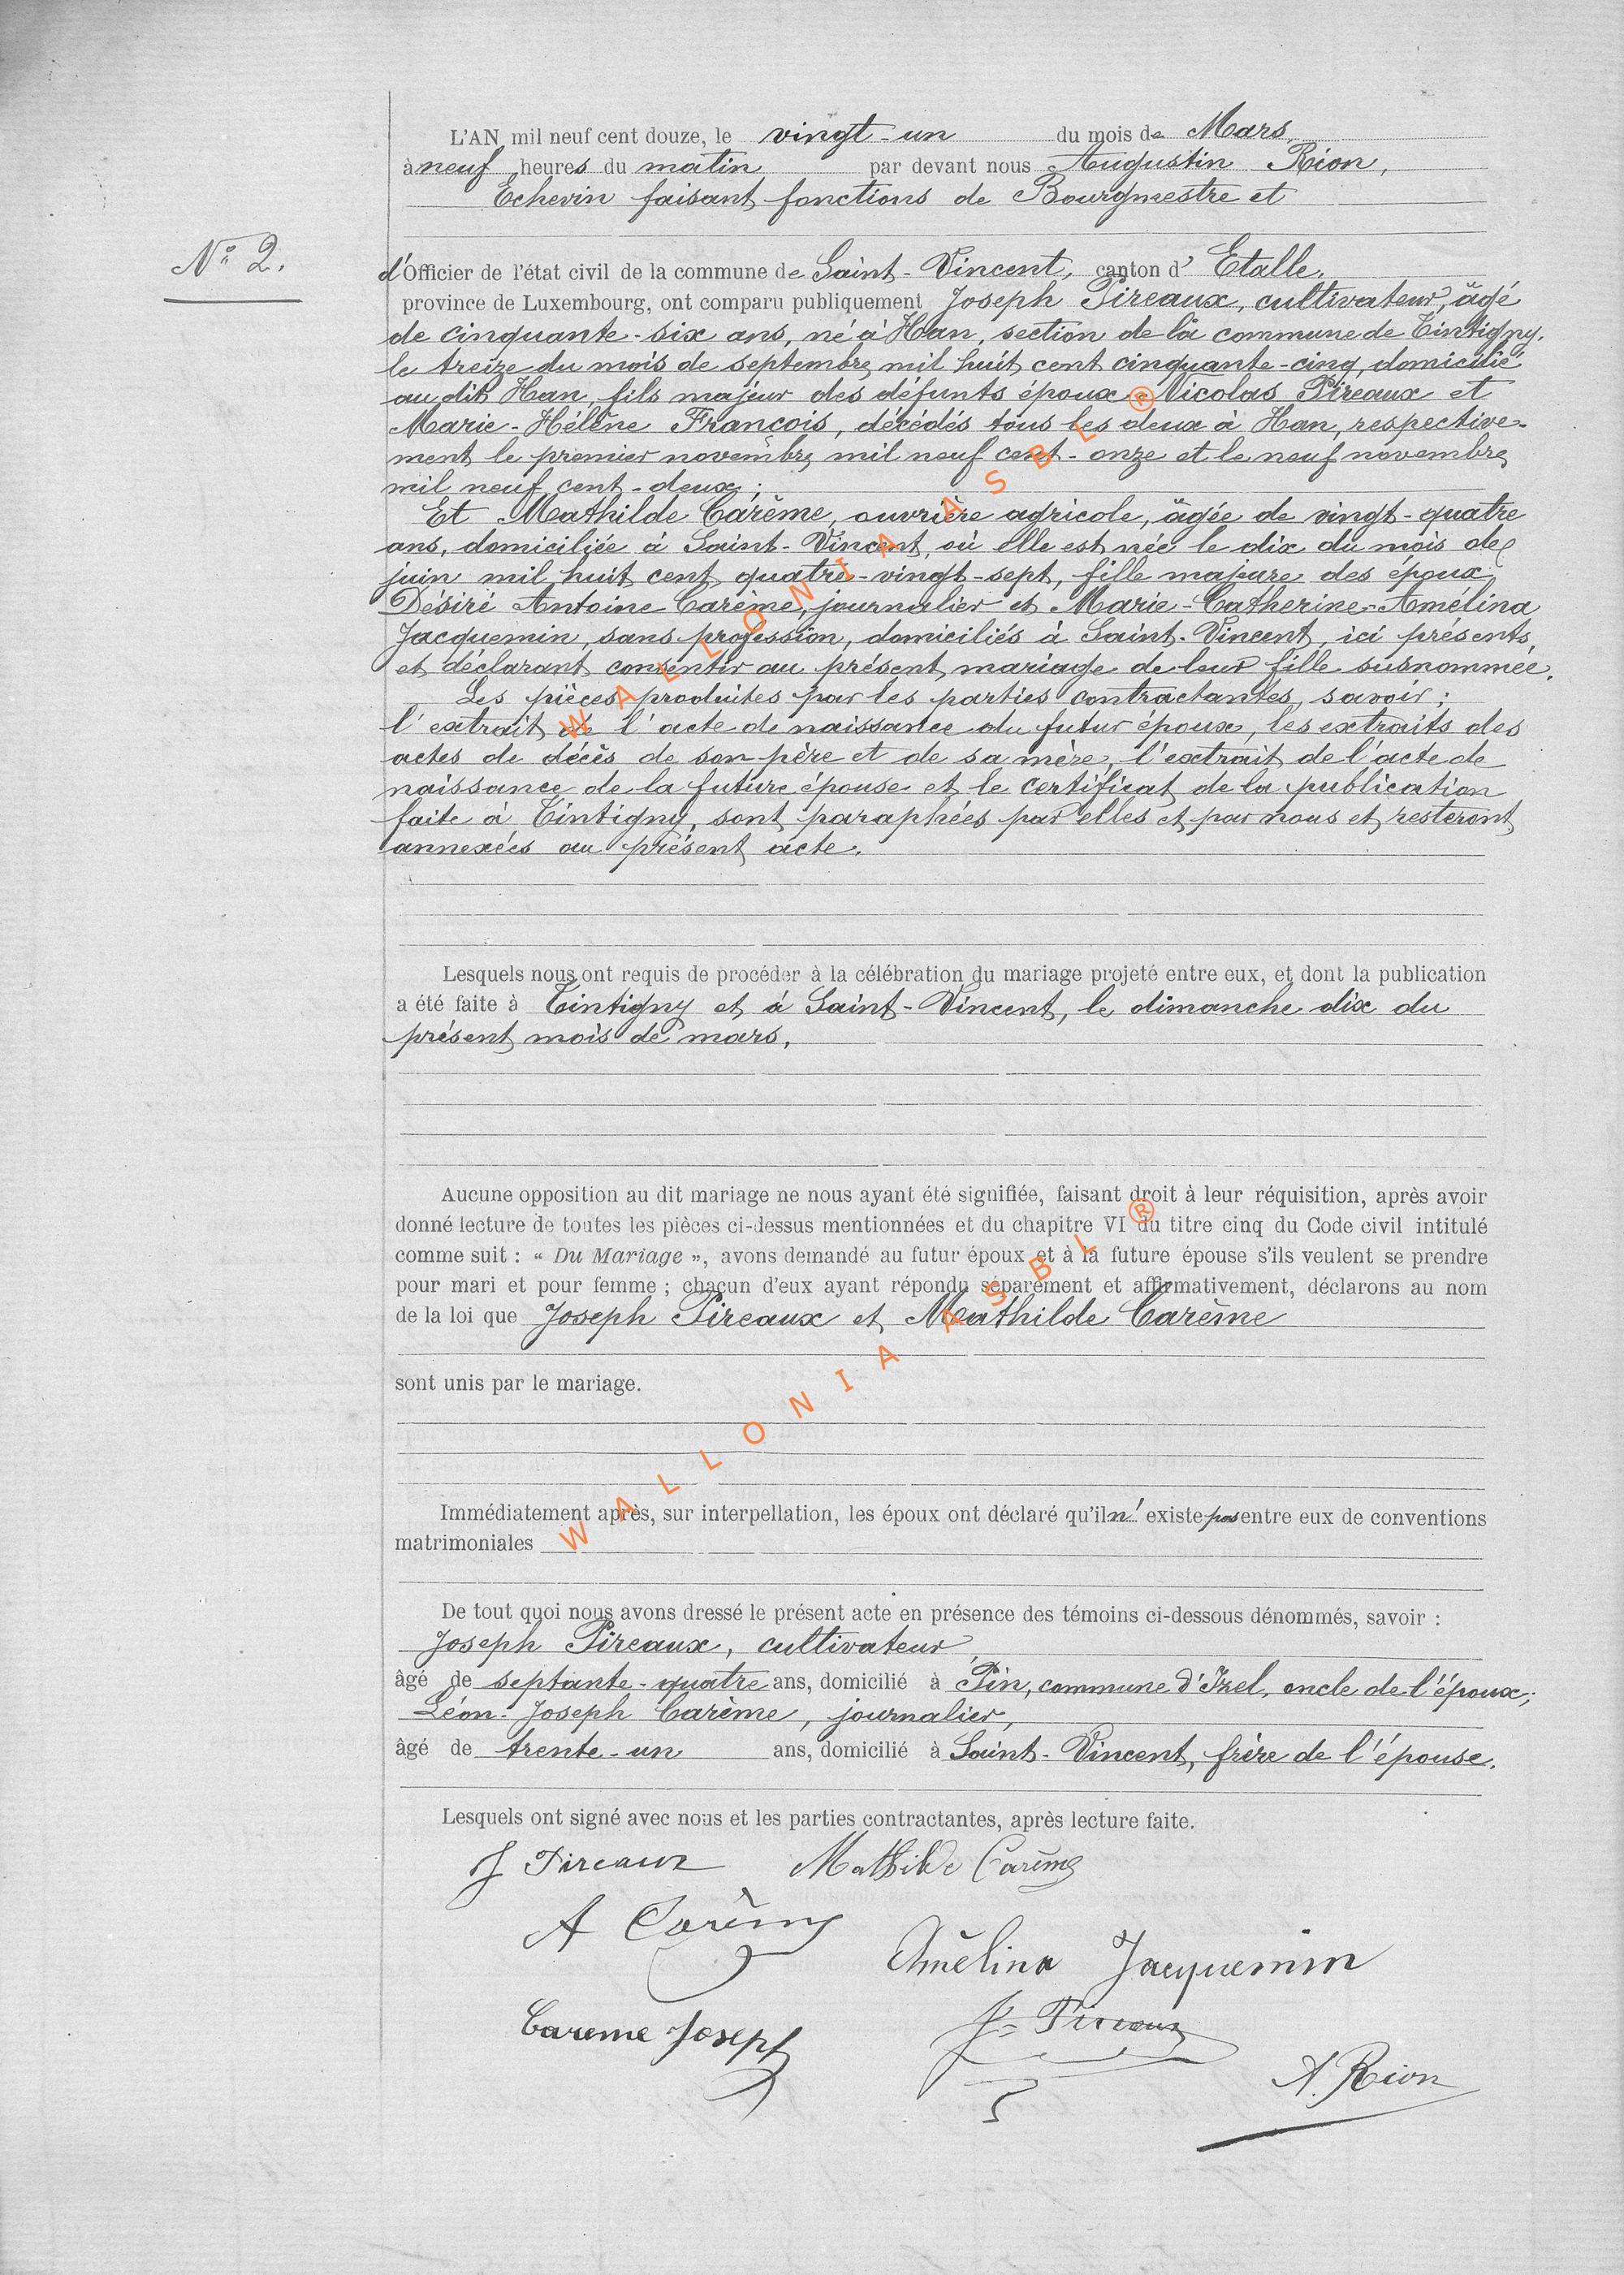 L'AN mil neuf cent douze, le vingt-un du mois de Mars
à neuf heures du matin par devant nous Augustin Rion,
Echevin faisant fonctions de Bourgmestre et
N° 2.
d'Officier de l'état civil de la commune de Saint-Vincent, canton d' Etalle,
province de Luxembourg, ont comparu publiquement Joseph Pireaux, cultivateur, âgé
de cinquante-six ans, né à Han, section de la commune de Tintigny,
le treize du mois de septembre mil huit cent cinquante-cinq, domicilié
au dit Han, fils majeur des défunts époux Nicolas Pireaux et
Marie-Hélène François, décédés tous les deux à Han, respective-
ment le premier novembre mil neuf cent-onze et le neuf novembre
mil neuf cent-deux;
Et Mathilde Carème, ouvrière agricole, âgée de vingt-quatre
ans, domiciliée à Saint-Vincent, où elle est née le dix du mois de
juin mil huit cent quatre-vingt-sept, fille majeure des époux
Désiré Antoine Carème, journalier et Marie-Catherine-Amélina
Jacquemin, sans profession, domiciliés à Saint-Vincent, ici présents
et déclarant consentir au présent mariage de leur fille susnommée.
Les pièces produites par les parties contractantes, savoir:
l'extrait de l'acte de naissance du futur époux, les extraits des
actes de décès de son père et de sa mère, l'extrait de l'acte de
naissance de la future épouse et le certificat de la publication
faite à Tintigny, sont paraphées par elles et par nous et resteront
annexées au présent acte.
Lesquels nous ont requis de procéder à la célébration du mariage projeté entre eux, et dont la publication
a été faite à Tintigny et à Saint-Vincent, le dimanche dix du
présent mois de mars.
Aucune opposition au dit mariage ne nous ayant été signifiée, faisant droit à leur réquisition, après avoir
donné lecture de toutes les pièces ci-dessus mentionnées et du chapitre VI du titre cinq du Code civil intitulé
comme suit : « Du Mariage », avons demandé au futur époux et à la future épouse s'ils veulent se prendre
pour mari et pour femme ; chacun d'eux ayant répondu séparément et affirmativement, déclarons au nom
de la loi que Joseph Pireaux et Mathilde Carème
sont unis par le mariage.
Immédiatement après, sur interpellation, les époux ont déclaré qu'il n' existe pas entre eux de conventions
matrimoniales
De tout quoi nous avons dressé le présent acte en présence des témoins ci-dessous dénommés, savoir :
Joseph Pireaux, cultivateur
âgé de septante-quatre ans, domicilié à Pin, commune d'Izel, oncle de l'époux;
Léon-Joseph Carème, journalier,
âgé de trente-un ans, domicilié à Saint-Vincent, frère de l'épouse.
Lesquels ont signé avec nous et les parties contractantes, après lecture faite.
J Pireaux Mathilde Carème
A Carème
Amélina Jacquemin
Careme Joseph
J. Pireaux
A. Rion
WALLONIA ASBL ®
WALLONIA ASBL ®